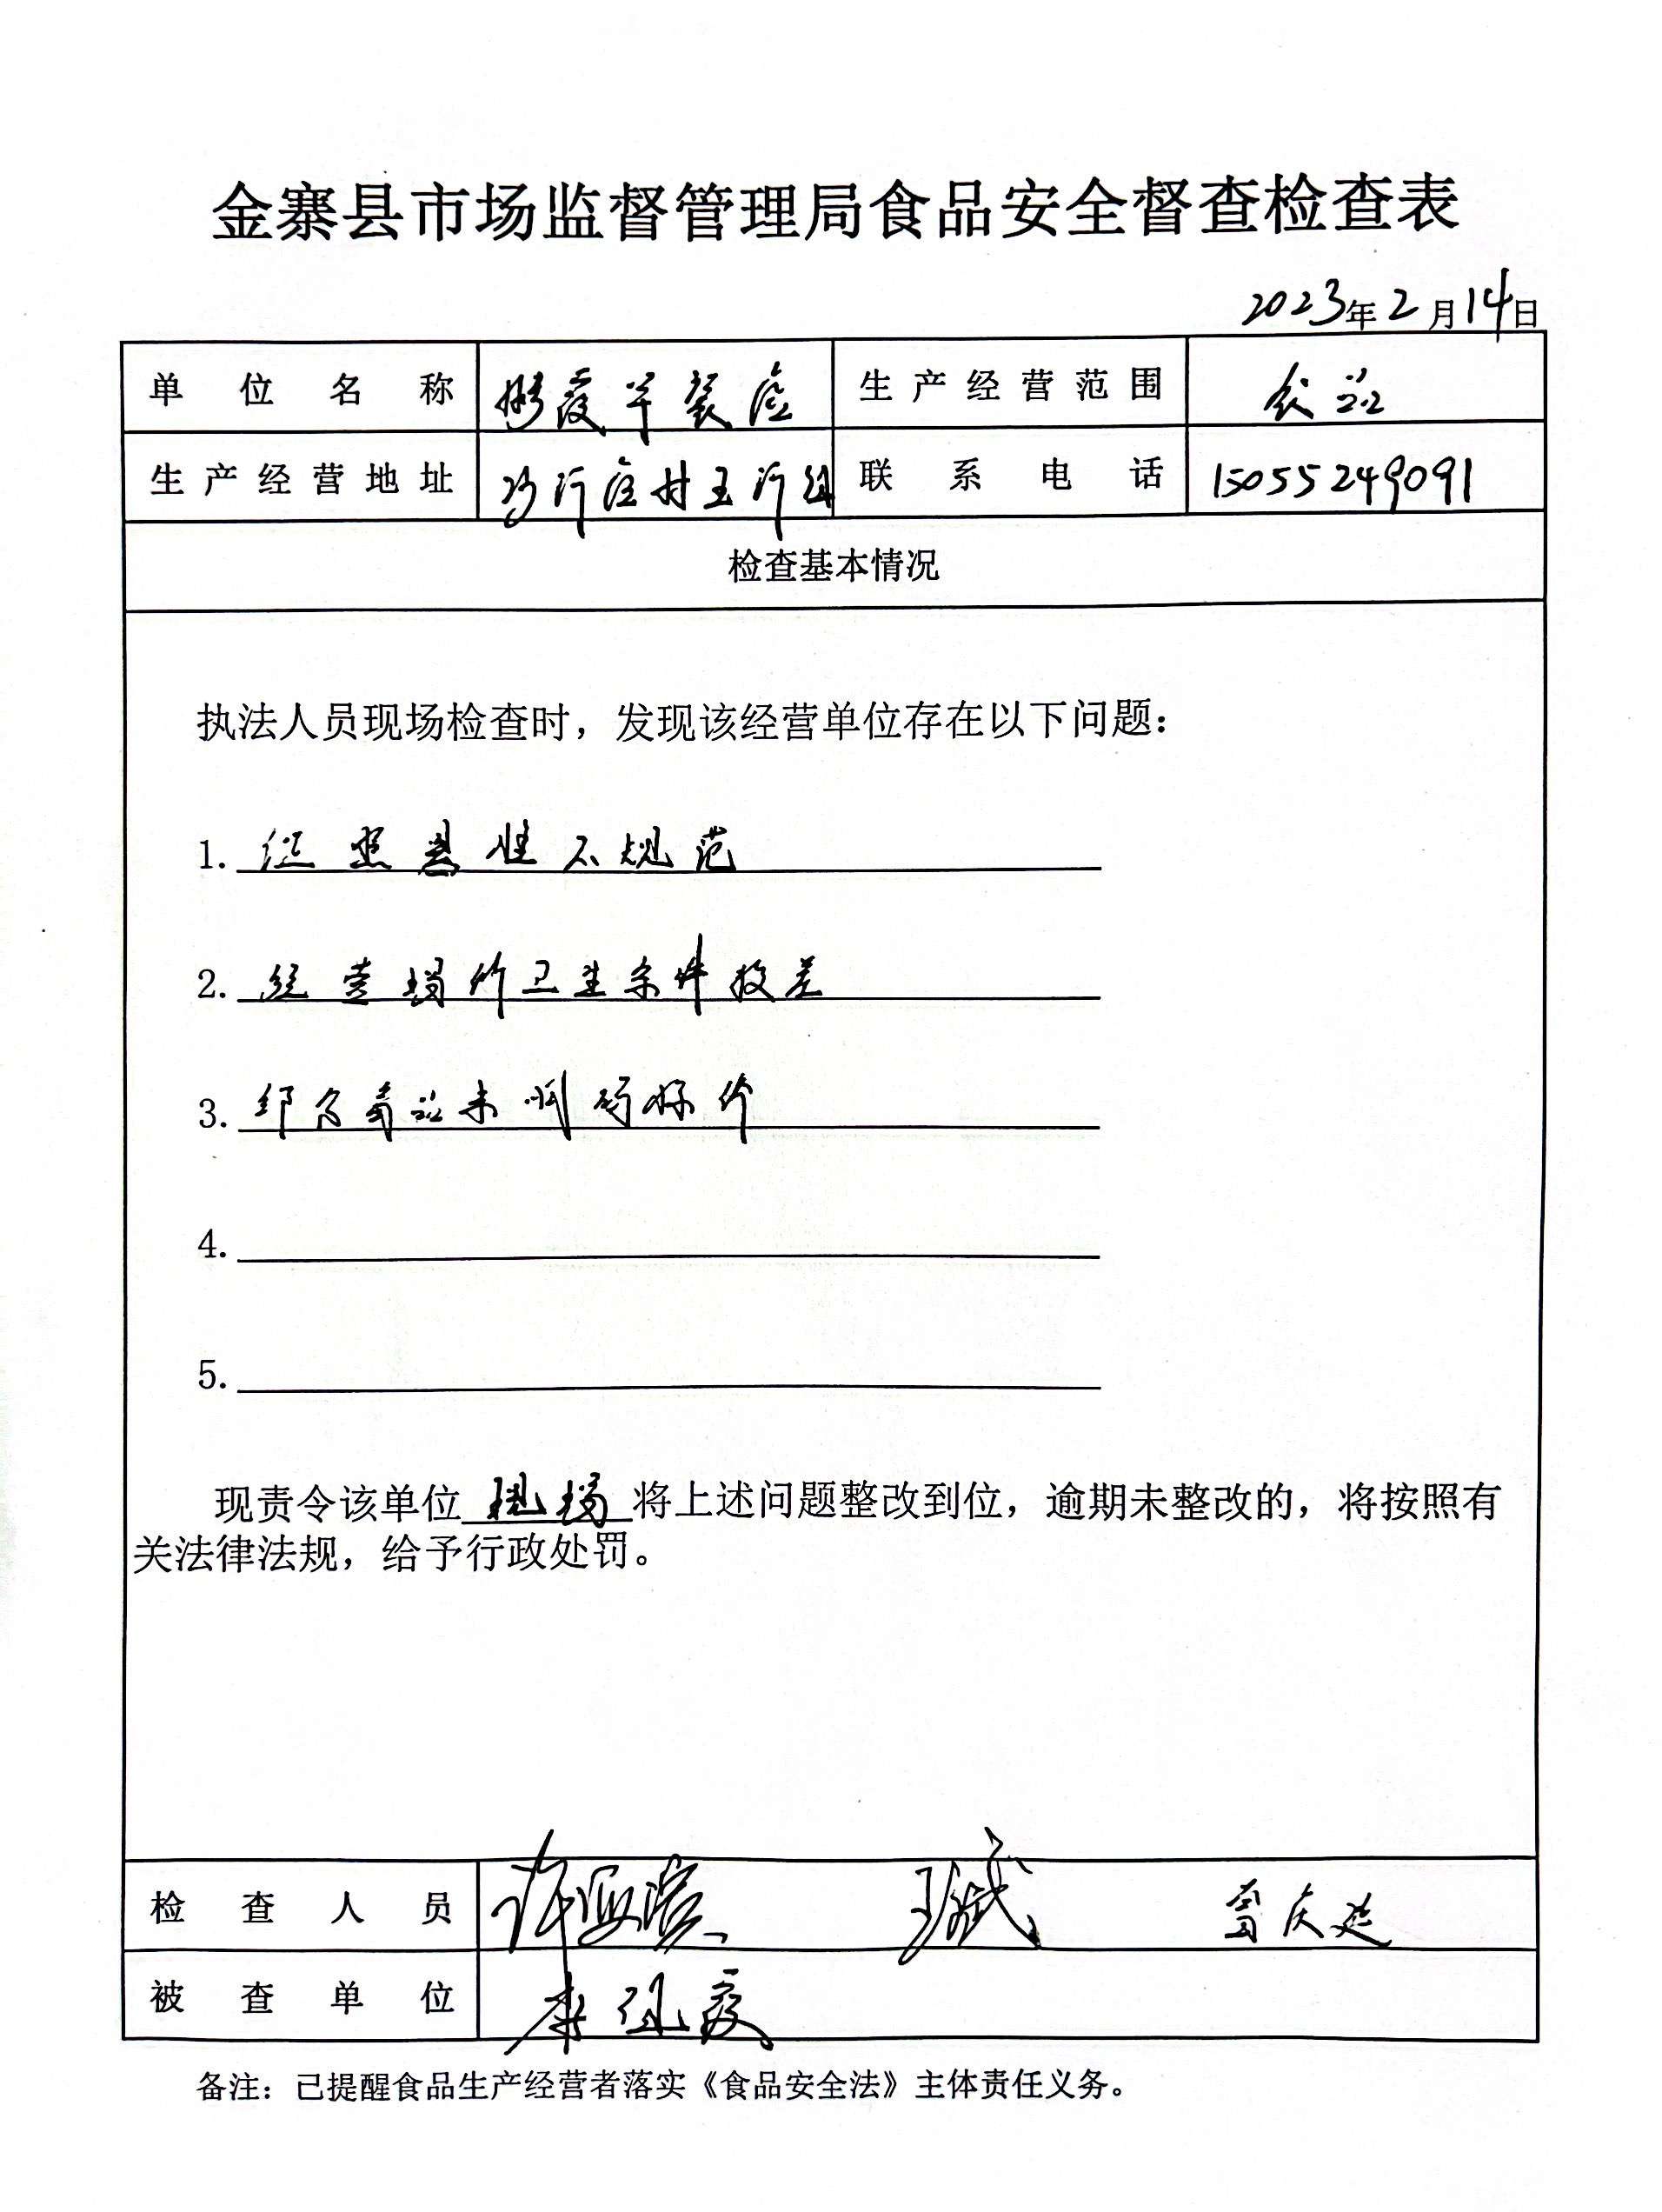 金寨县市场监督管理局食品安全督查检查表
2023年2月14日
单位名称 生产经营范围 食品
生产经营地址 联系电话 15055249091
检查基本情况
执法人员现场检查时，发现该经营单位存在以下问题：
1. 证照悬挂不规范
2. 经营场所卫生条件较差
3. 部分商品未明码标价
4.
5.
现责令该单位 现场 将上述问题整改到位，逾期未整改的，将按照有
关法律法规，给予行政处罚。
检查人员
被查单位
备注：已提醒食品生产经营者落实《食品安全法》主体责任义务。